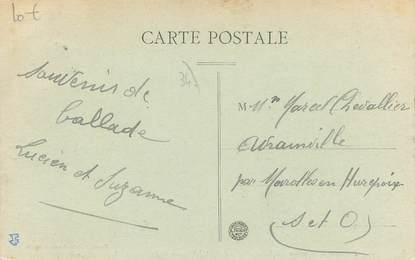 Lot
CARTE POSTALE
Souvenir de
ballade
Lucien et Suzanne
M Mr Marcel Chevallier
Avrainville
par Marolles en Hurepoix
S et O